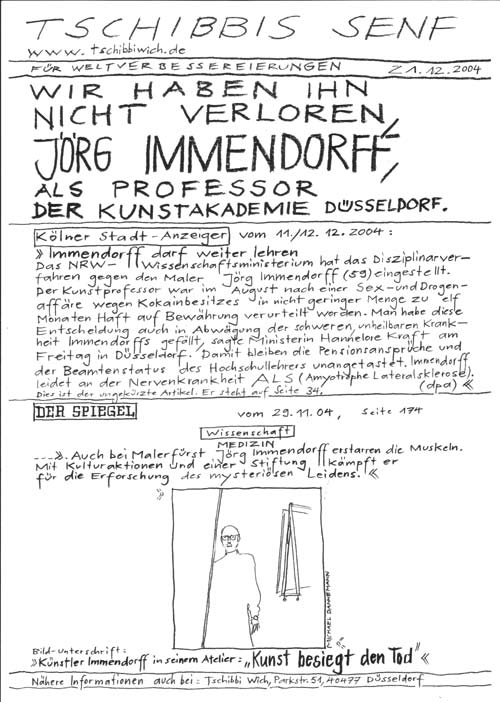 TSCHIBBIS SENF
www.tschibbiwich.de
FÜR WELTVERBESSEREIERUNGEN 21.12.2004
WIR HABEN IHN
NICHT VERLOREN,
JÖRG IMMENDORFF,
ALS PROFESSOR
DER KUNSTAKADEMIE DÜSSELDORF.
Kölner Stadt-Anzeiger vom 11./12.12.2004:
»Immendorff darf weiter lehren
Das NRW-Wissenschaftsministerium hat das Disziplinarver-
fahren gegen den Maler Jörg Immendorff (59) eingestellt.
Der Kunstprofessor war im August nach einer Sex- und Drogen-
affäre wegen Kokainbesitzes in nicht geringer Menge zu elf
Monaten Haft auf Bewährung verurteilt worden. Man habe diese
Entscheidung auch in Abwägung der schweren, unheilbaren Krank-
heit Immendorffs gefällt, sagte Ministerin Hannelore Kraft am
Freitag in Düsseldorf. Damit bleiben die Pensionsansprüche und
der Beamtenstatus des Hochschullehrers unangetastet. Immendorff
leidet an der Nervenkrankheit ALS (Amyotrophe Lateralsklerose).
Dies ist der ungekürzte Artikel. Er steht auf Seite 34. (dpa) «
DER SPIEGEL vom 29.11.04, Seite 174
Wissenschaft
MEDIZIN
....». Auch bei Malerfürst Jörg Immendorff erstarren die Muskeln.
Mit Kulturaktionen und einer Stiftung kämpft er
für die Erforschung des mysteriösen Leidens. «
MICHAEL DANNEMANN
Bild-unterschrift:
»Künstler Immendorff in seinem Atelier: „Kunst besiegt den Tod"«
Nähere Informationen auch bei: Tschibbi Wich, Parkstr. 51, 40477 Düsseldorf